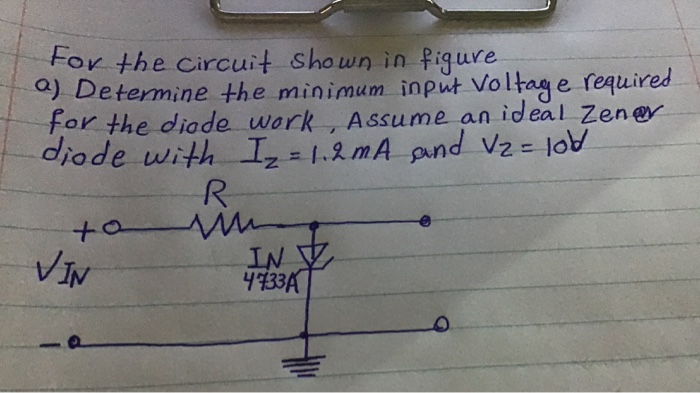 For the circuit shown in figure
a) Determine the minimum input Voltage required
for the diode work, Assume an ideal Zener
diode with Iz = 1.2mA and Vz = 10V
R
+
VIN
IN
4733A
-